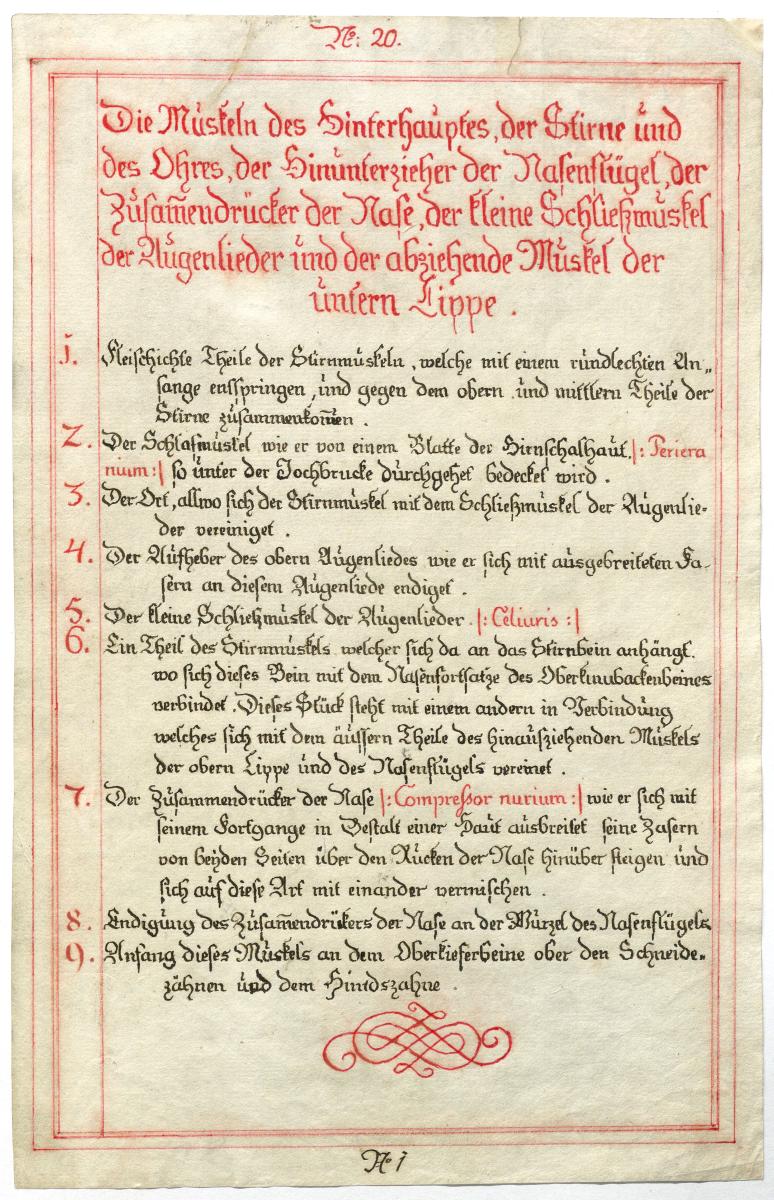 No: 20.
Die Muskeln des Hinterhauptes, der Stirne und
des Ohres, der Hinunterzieher der Nasenflügel, der
Zusam̅endrücker der Nase, der kleine Schließmuskel
der Augenlieder und der abziehende Muskel der
untern Lippe.
1. Fleischichte Theile der Stirnmuskeln, welche mit einem rundlechten An„
fange entspringen, und gegen dem obern und mittlern Theile der
Stirne zusammenkom̅en.
2. Der Schlafmuskel wie er von einem Blatte der Hirnschalhaut |: Periera
nium :| so unter der Jochbrucke durchgehet bedecket wird.
3. Der Ort, allwo sich der Stirnmuskel mit dem Schließmuskel der Augenlie=
der vereiniget.
4. Der Aufheber des obern Augenliedes wie er sich mit ausgebreiteten Fa-
sern an diesem Augenliede endiget.
5. Der kleine Schließmuskel der Augenlieder |: Celiuris :|
6. Ein Theil des Stirnmuskels welcher sich da an das Stirnbein anhängt.
wo sich dieses Bein mit dem Nasenfortsatze des Oberkinnbackenbeines
verbindet. Dieses Stück steht mit einem andern in Verbindung
welches sich mit dem äussern Theile des hinausziehenden Muskels
der obern Lippe und des Nasenflügels vereinet.
7. Der Zusammendrücker der Nase |: Compressor nurium :| wie er sich mit
seinem Fortgange in Gestalt einer Haut ausbreitet seine Zasern
von beyden Seiten über den Rucken der Nase hinüber steigen und
sich auf diese Art mit einander vermischen.
8. Endigung des Zusam̅endrükers der Nase an der Wurzel des Nasenflügels
9. Anfang dieses Muskels an dem Oberkieferbeine ober den Schneide=
zähnen und dem Hundszahne.
No 1